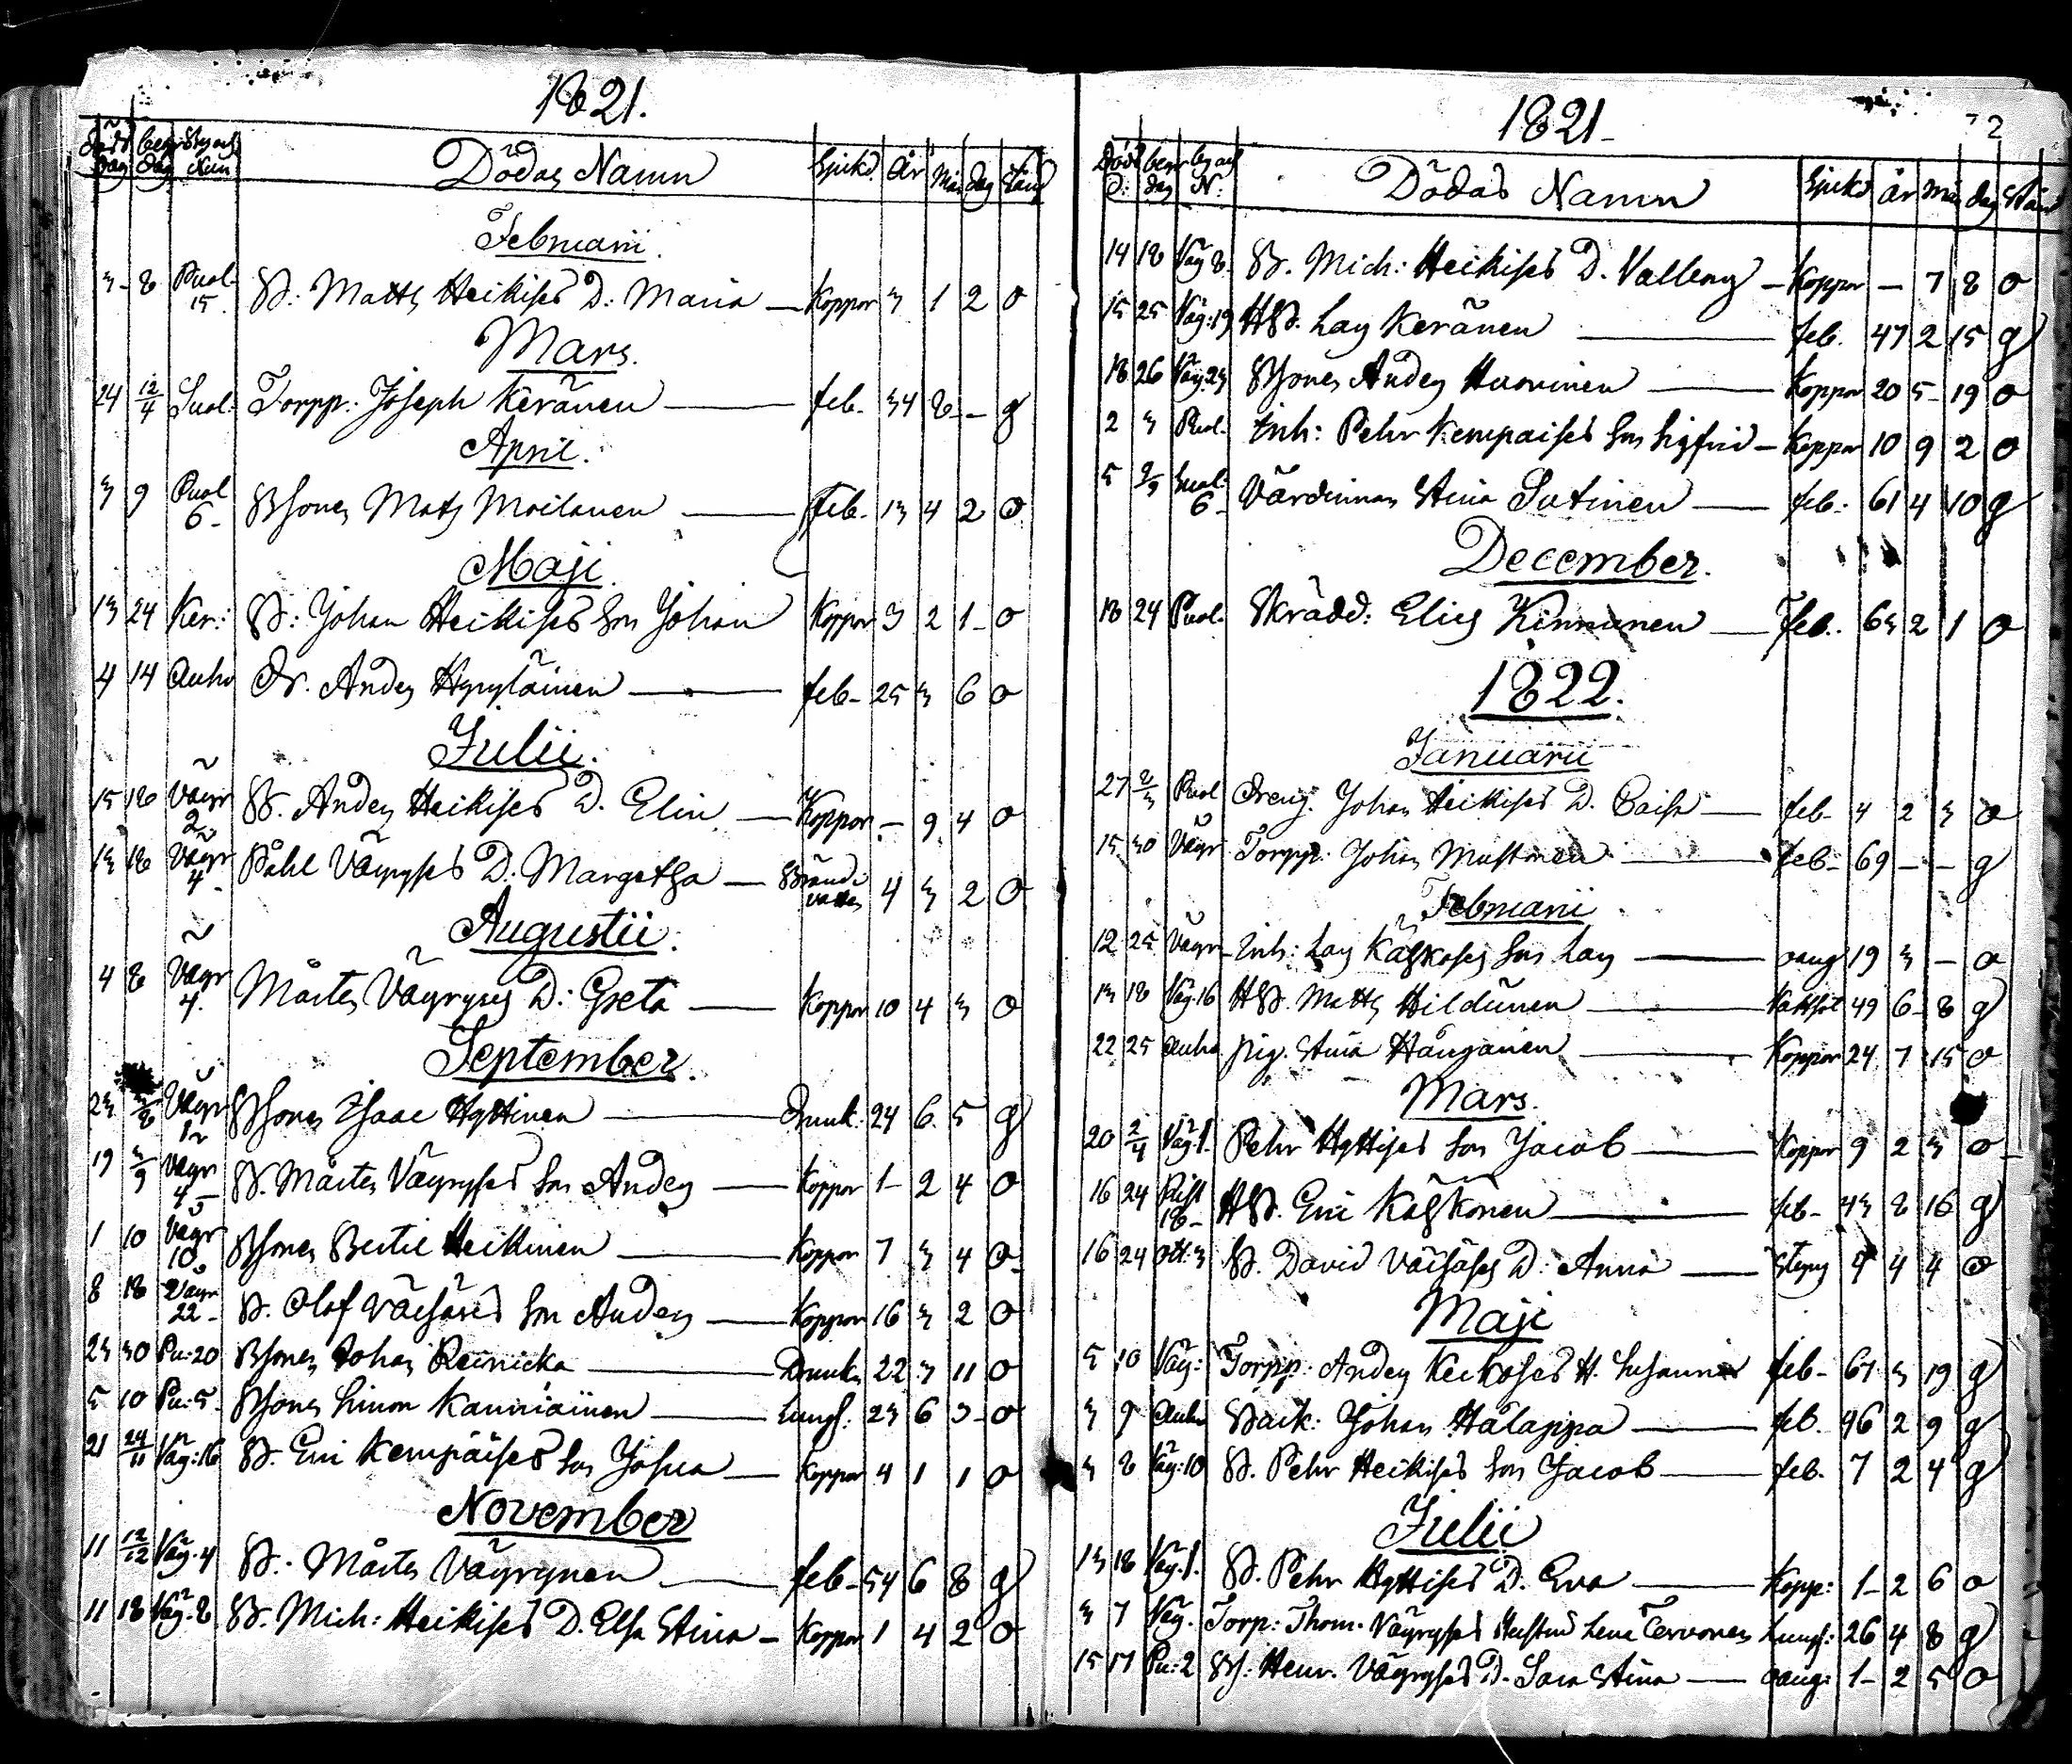 1821.
Död dag begr dag By och Num Dödas Namn Sjukd. År Mån dag Stånd
Februarii
3 8 Puol. 15 B: Matts Heikises D: Maria — Koppor 3 1 2 o
Mars.
24 12/4 Suol: Torpp: Joseph Keränen — feb. 34 8 - g
April.
3 9 Puol 6 BSonen Mats Moilanen — Feb. 13 4 2 o
Maji.
13 24 Ker: B: Johan Heikises Son Johan Koppor 3 2 1 o
4 14 Auho Dr. Anders Kyyläinen — feb 25 3 6 o
Julii.
15 18 Väyr 2 B. Anders Heikises D. Elin — Koppor - 9 4 o
13 18 Väyr 4 Påhl Väyryses D. Margetha — 4 3 2 o
Augustii.
4 8 Väyr 4. Mårten Väyryses D: Greta — Koppor 10 4 3 o
September.
23 Väyr 1 BSonen Isaac Hyttinen — Drunk. 24 6 5 g
19 3/9 Väyr 4 B. Mårten Väyryses Son Anders — Koppor 1 2 4 o
1 10 Väyr 10 BSonen Bertil Heikkinen — Koppor 7 3 4 o
8 18 Väyr 22 B. Olof Väisäses Son Anders — Koppor 16 3 2 o
23 30 Pu: 20 BSonen Johan Reinicka — Drunkn 22 3 11 o
5 10 Pu: 5. BSonen Simon Kanniainen — Lungs: 23 6 3 o
21 24/11 Väy: 16 B. Eric Kempaises Son Josua — Koppor 4 1 1 o
November
11 12/12 Väy. 4 B: Mårten Väyrynen — feb 54 6 8 g
11 18 Väy. 8 B. Mich: Heikises D. Elsa Stina — Koppor 1 4 2 o
1821
Död d: begr dag by och N: Dödas Namn Sjukd År Mån dag Stånd
14 18 Väy 8. B. Mich: Heikises D. Valborg — Koppor — 7 8 o
15 25 Väy: 19 HB. Lars Keränen — feb. 47 2 15 g
18 26 Väy. 23 BSonen Anders Huovinen — Koppor 20 5 19 o
2 3 Puol. Inh: Pehr Kempaises Son Sigfrid — Koppor 10 9 2 o
5 Suol: 6 Värdinnan Stina Sutinen — feb: 61 4 10 g
December.
18 24 Puol. Skrädd: Elias Kinnunen — Feb. 63 2 1 o
1822.
Januarii
27 Puol Dreng. Johan Heikises D. Caisa — feb 4 2 3 o
15 30 Väyr Torpp: Johan Mustonen — feb: 69 — — g
Februarii
12 25 Väyr Inh: Lars Kälkäses Son Lars — 19 3 — o
13 18 Väy: 16 HB. Matts Hildunen — 49 6 8 g
22 25 Auho Pig. Stina Hänganen — Koppor 24 7 15 o
Mars.
20 2/4 Väy 1. Pehr Hyttises Son Jacob — Koppor 9 2 3 o
16 24 Rist 18 HB. Eric Kälkönen — feb 43 8 16 g
16 24 Ott: 3 B. David Väisäses D: Anna — 9 4 4 o
Maji
5 10 Väy: Torpp: Anders Keikoses H. Susanna feb 67 3 19 g
3 9 Auho Back: Johan Hälappa — feb. 46 2 9 g
3 8 Väy: 10 B. Pehr Heikises Son Jacob — feb. 7 2 4 g
Julii
13 18 Väy. 1. B. Pehr Hyttises D. Eva — Kopp: 1 2 6 o
3 7 Väy. Torp: Thom. Väyryses Hustru Lena Tervonen Lungs: 26 4 8 g
15 17 Pu: 2 BS: Henr. Väyryses D. Sara Stina — 1 2 5 o